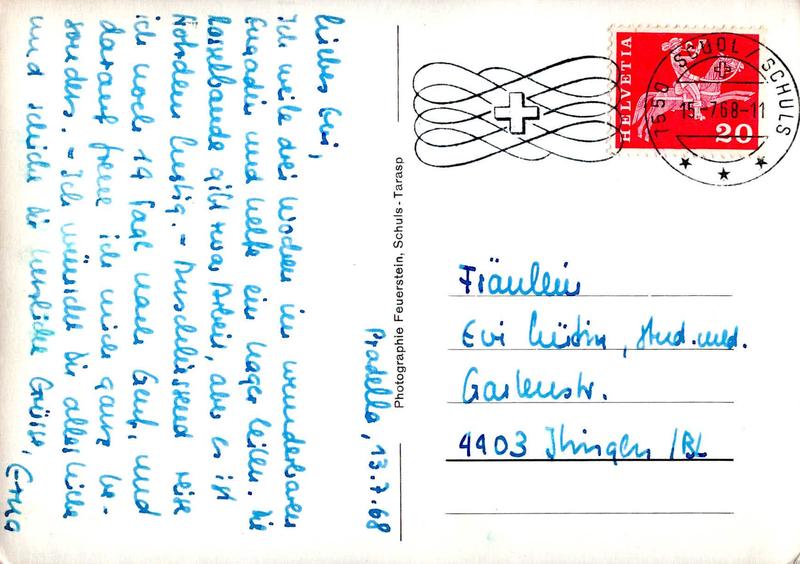 Pradella, 13.7.68
Liebes Evi,
Ich weile drei Wochen im wunderbaren
Engadin und helfe ein Lager leiten. Die
Rasselbande gibt zwar Arbeit, aber es ist
trotzdem lustig. – Anschliessend reise
ich noch 14 Tage nach Genf, und
darauf freue ich mich ganz be-
sonders. – Ich wünsche dir alles Liebe
und schicke dir herzliche Grüsse, Erna
Photographie Feuerstein, Schuls - Tarasp
HELVETIA
20
7550 SCUOL / SCHULS
15.-7.68-11
Fräulein
Evi Lüdin, stud. med.
Gartenstr.
Itingen /BL